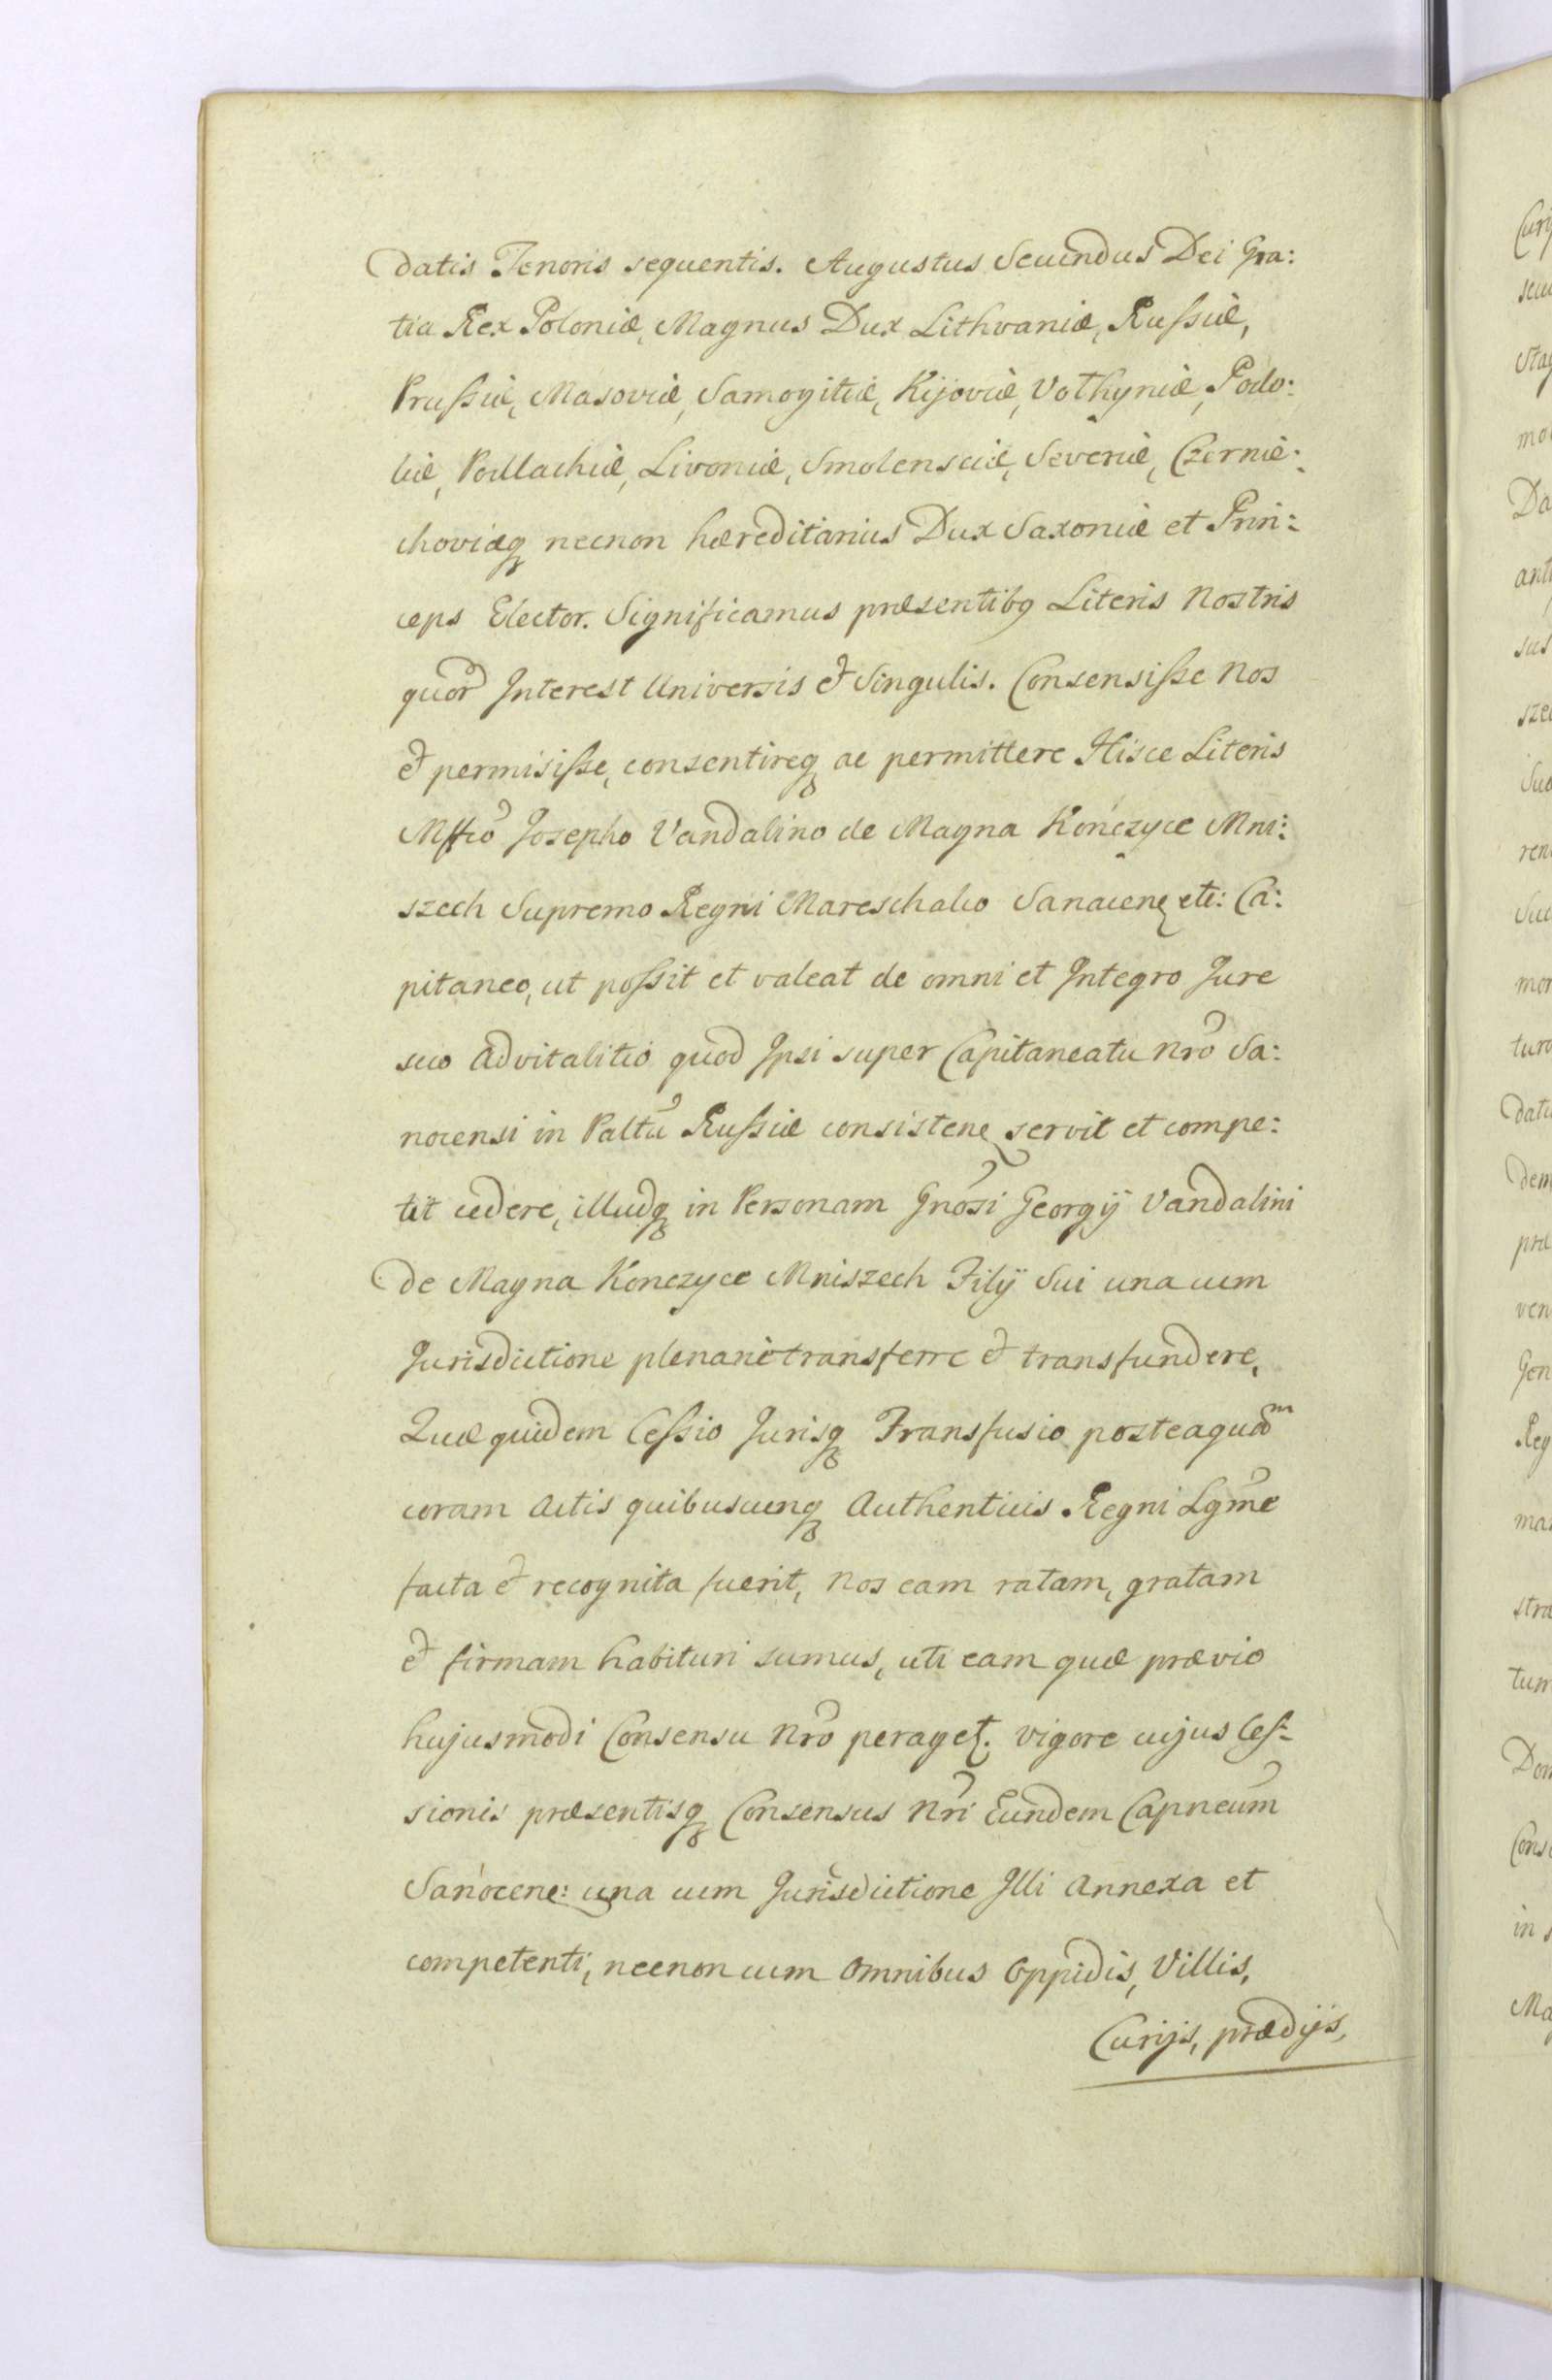 datis Tenoris sequentis. Augustus Secundus Dei Gra:
tia Rex Poloniæ, Magnus Dux Lithvaniæ, Russiæ,
Prussiæ, Masoviæ, Samogitiæ, Kijoviæ, Volhyniæ, Podo:
liæ, Podlachiæ, Livoniæ, Smolensciæ, Severiæ, Czernie:
choviæq necnon hæreditarius Dux Saxoniæ et Prin:
ceps Elector. Significamus præsentibq Literis Nostris
quor Interest Universis et Singulis. Consensisse Nos
et permisisse, consentireq ac permittere Hisce Literis
Mffco Josepho Vandalino de Magna Kończyce Mni:
szech Supremo Regni Mareschalco Sanocen etc: Ca:
pitaneo, ut possit et valeat de omni et Integro Jure
suo advitalitio quod Ipsi super Capitaneatu Nrõ Sa:
nocensi in Paltũ Russiæ consisten servit et compe:
tit cedere, illudq in Personam Gnõsi Georgij Vandalini
de Magna Konczyce Mniszech Filij Sui una cum
Jurisdictione plenariè transferre et transfundere,
Quæ quidem Cessio Jurisq Transfusio posteaquam
coram Actis quibuscunq Authenticis Regni Lgmẽ
facta et recognita fuerit, Nos eam ratam, gratam
et firmam habituri sumus, uti eam quæ prævio
hujusmodi Consensu Nrõ peraget. vigore cujus Ces-
sionis præsentisq Consensus Nrĩ Eundem Capneũm
Sanocene: una cum Jurisdictione Illi Annexa et
competenti, necnon cum Omnibus Oppidis, Villis,
Curijs, prædijs,